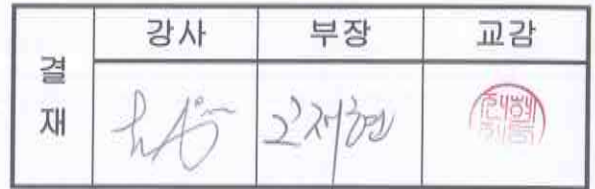 결재
강사 부장 교감
고재현